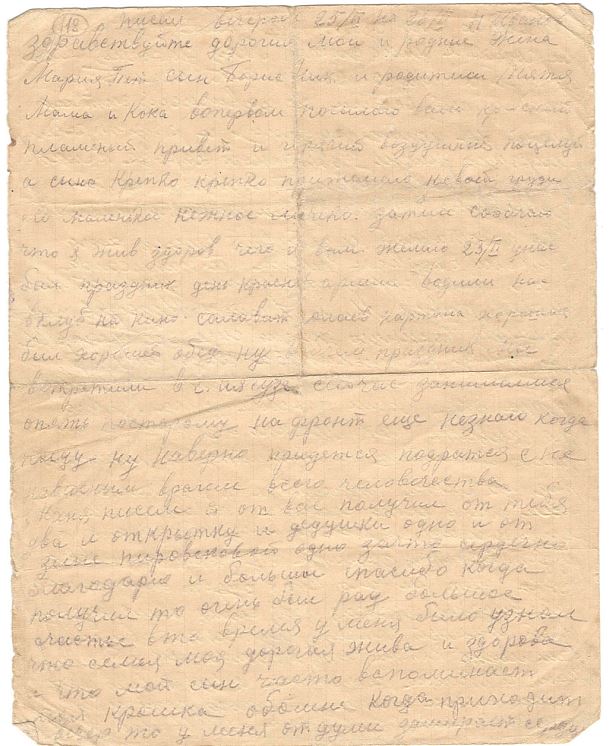 18 писал вечером 25/II на 26/II
здравствуйте дорогия мои и родные жена
Мария Пет сын Борис Ник и родители тятя
Мама и Кока вопервом посылаю вам
пламеный привет и горячий воздушный поцелуй
а сына крепко крепко прижимаю к своей груди
его маленькое нежное личико. затем сообчаю
что я жив здоров чего и вам желаю 23/II у нас
был праздник день красной армии водили нас
в клуб на кино. салават юлаев картина хорошая
был хороший обед ну вобщем праздник
встретили в г. сейчас занимаемся
опять постарому на фронт еще незнаю когда
поеду ну наверно придется подратся с не
навистным врагом всего человечества.
писем я от вас получил от тебя
два и открытку и дедушки одно и от
одно за что сердечно
благодарю и большое спасибо когда
получил то очень был рад большое
счастье в то время у меня было узнал
что семья моя дорогая жива и здорова
и что мой сын часто вспоминает
меня крошка обо мне когда приходит
вечер то у меня от думи замирает се